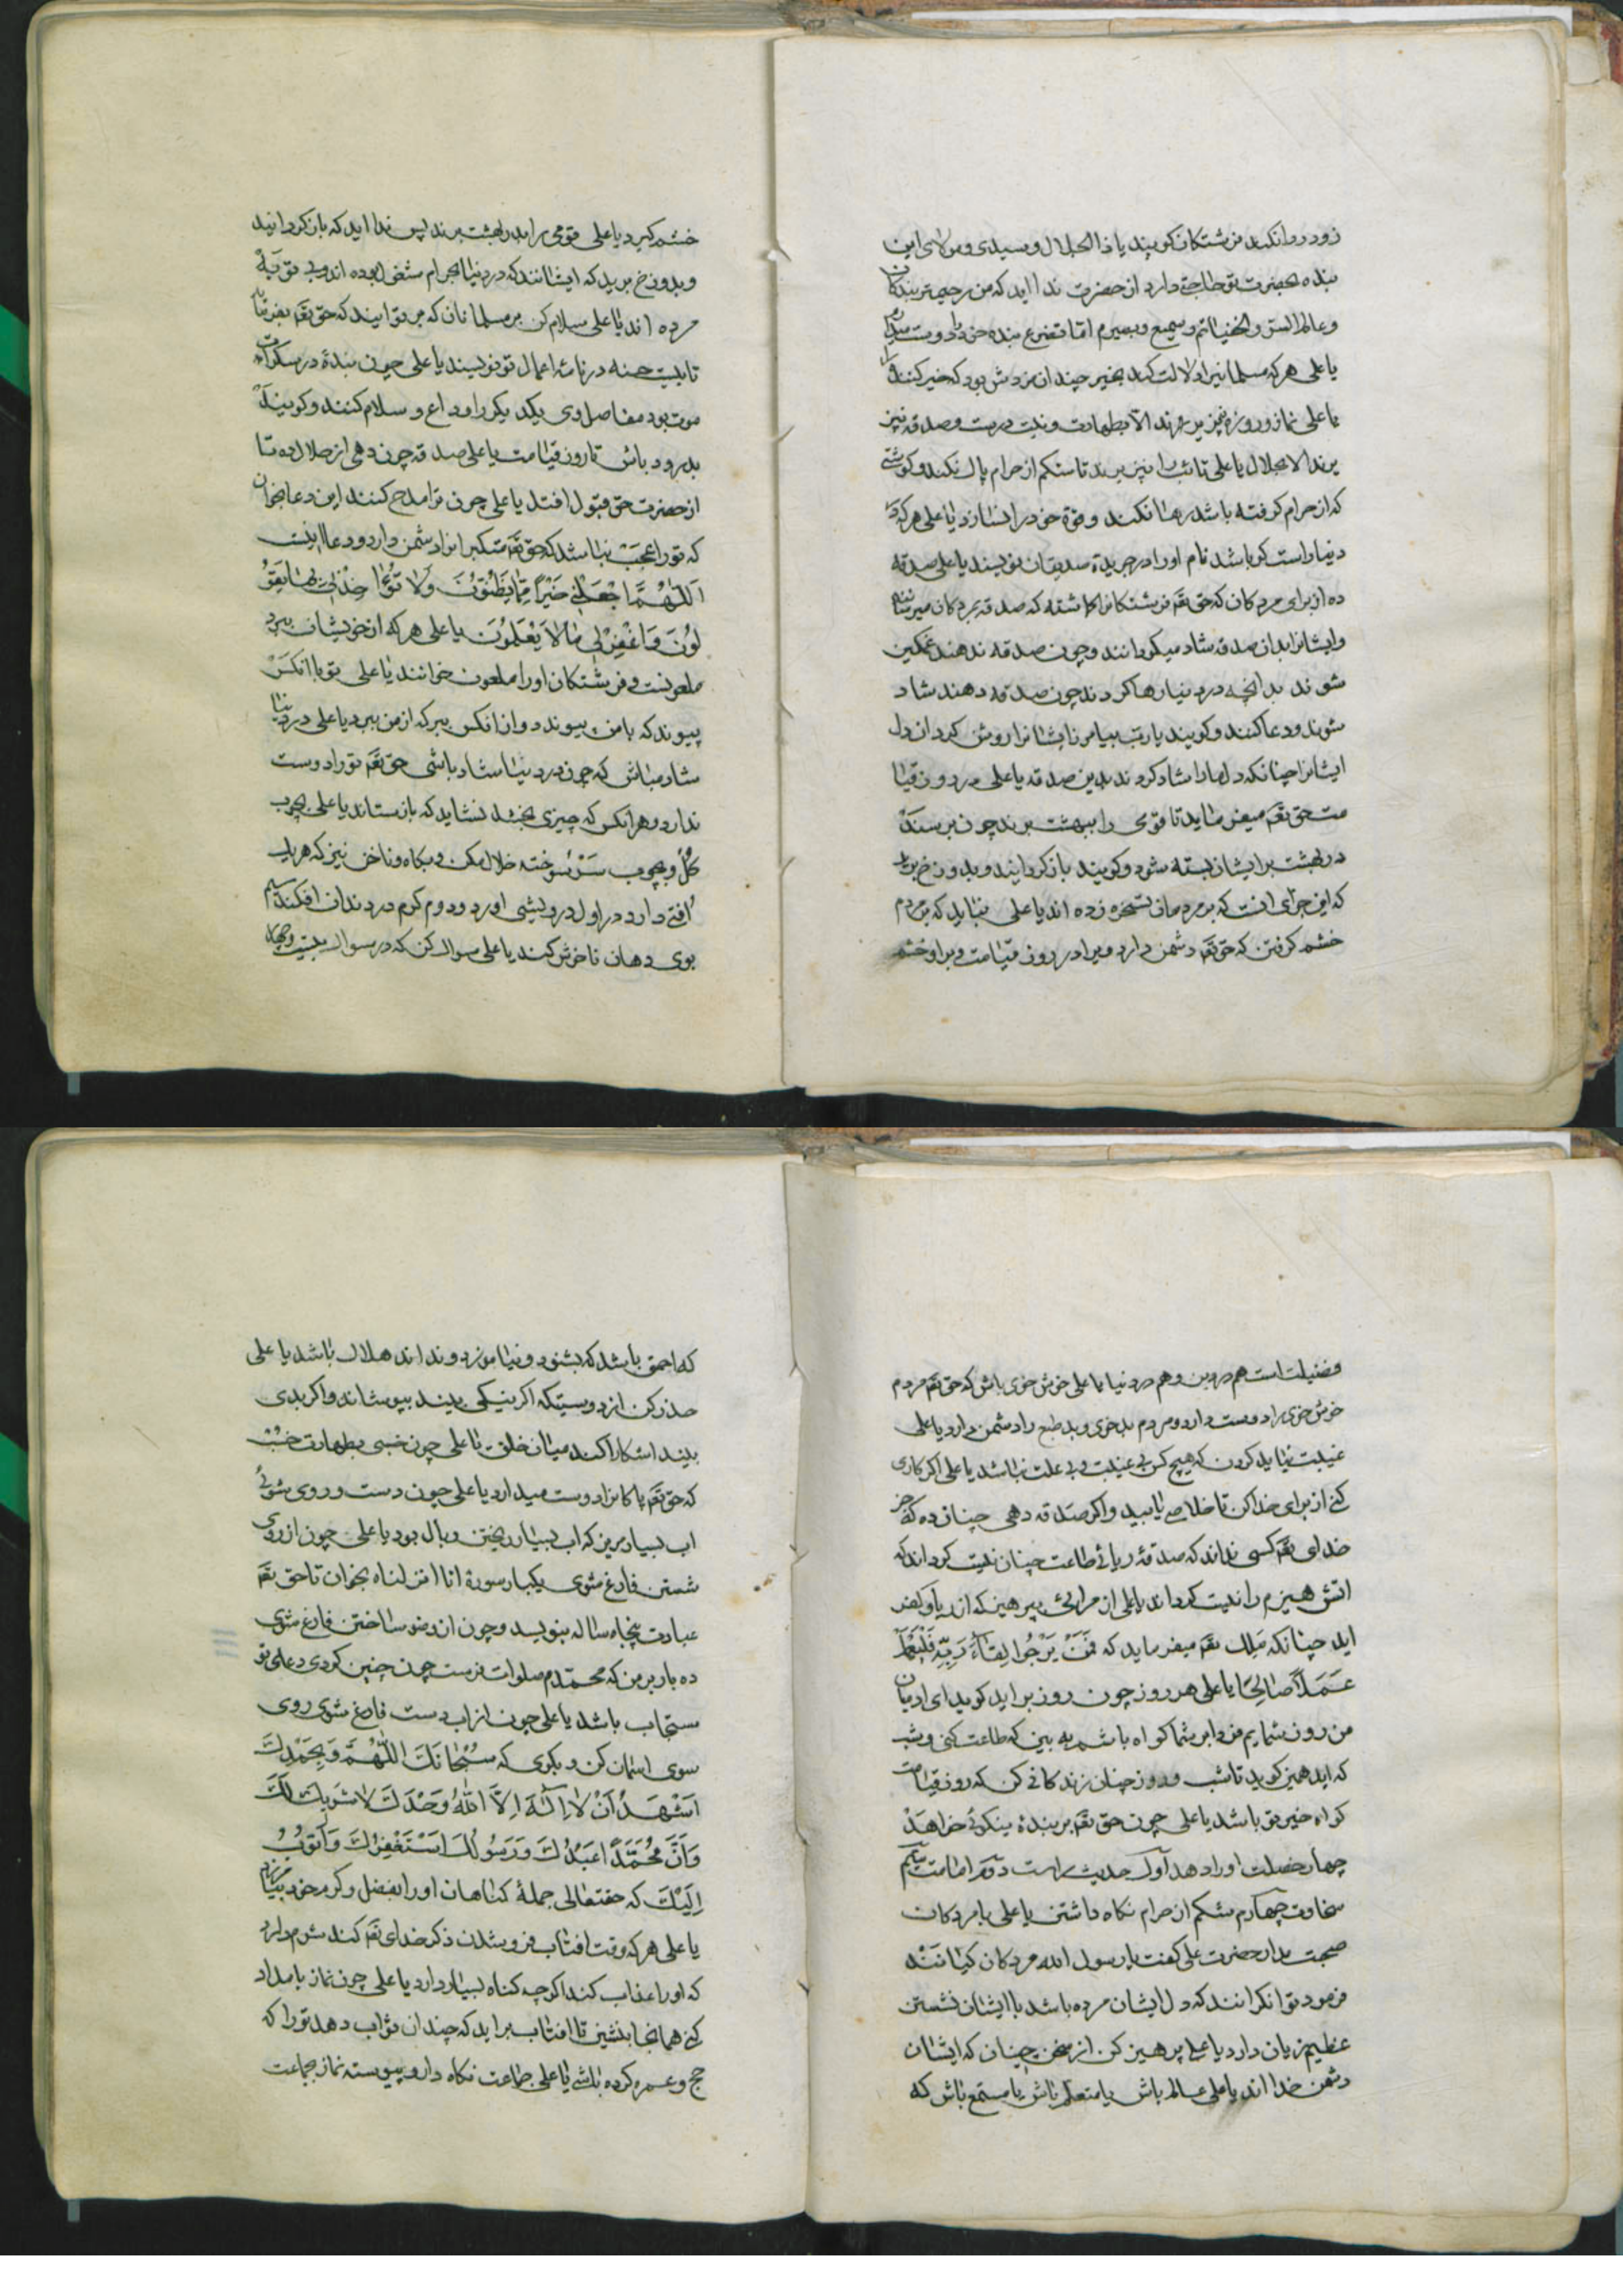 زود روا نکند فرشتکان کویند یا ذا الجلال و سیدی و مولای این
بنده بحضرت تو حاجة دارد از حضرت ندا اید که من رحیمتر بندکان
و عالم السر و الخفیاتم و سمیع و بصیرم اما تضرع بنده خود را دوست
یا علی هر که مسلمانیرا دلالت کند بخیر چندان مزدش بود که خیر کننده را
یا علی نماز و روزه نپذیرند الا بطهارت و نیت درست و صدقه نیز
پرند الا بحلال یا علی تائب را نپذیرند تا شکم از حرام پاک نکند و کوشتی
که از حرام کرفته باشد رها نکند و قوة خود را نسازد یا علی هر که در
دنیا راست کو باشد نام او را در جریده صدیقان نویسند یا علی صدقه
ده از برای مردکان که حق تعم فرشتکانرا کماشته که صدقه بمردکان میرسانند
و ایشانرا بدان صدقه شاد میکردانند و چون صدقه ندهند غمکین
شوند بدانچه در دنیا رها کردند چون صدقه دهند شاد
شوند و دعا کنند و کویند یا رب بیامرز ایشانرا و روشن کردان دل
ایشانرا چنانکه دلهارا شاد کردند بدین صدقه یا علی در روز قیا
مت حق تعم میفرماید تا قومی را ببهشت برند چون برسند
در بهشت برایشان بسته شود و کویند باز کردانید و بدوزخ برید
که این جزای انست که بر مردمان تسخره زده اند یا علی نباید که بمردم
خشم کرفتن که حق تعم دشمن دارد ویرا در روز قیامت بر او خشم
خشم کیرد یا علی قومی را بدر بهشت برند پس ندا اید که باز کردانید
و بدوزخ برید که ایشانند که در دنیا بحرام مشغول بوده اند و بی توبه
مرده اند یا علی سلام کن بر مسلمانان که بر تو ایند که حق تعم بفرماید
تا بیست حسنه در نامهٔ اعمال تو نویسند یا علی چون بندهٔ در سکرات
موت بود مفاصل وی یکدیکر را وداع و سلام کنند و کویند
بدرود باش تا روز قیامت یا علی صدقه چون دهی از حلال ده تا
از حضرت حق قبول افتد یا علی چون ترا مدح کنند این دعا بخوان
که تورا عجب نباشد که حق تعم متکبرانرا دشمن دارد و دعا اینست
اَللّٰهُمَّ اجْعَلْنِی خَیْرًا مِمَّا یَظُنُّونَ وَلَا تُؤَاخِذْنِی بِمَا یَقُو
لُونَ وَاغْفِرْلِی مَالَا یَعْلَمُونَ یا علی هر که از خویشان ببرد
ملعونست و فرشتکان او را ملعون خوانند یا علی تو با انکس
پیوند که با من پیوندد و از انکس ببر که از من ببرد یا علی در دنیا
شاد مباش که چون در دنیا شاد باشی حق تعم تورا دوست
ندارد و هر انکس که چیزی بخشد نشاید که بازستاند یا علی بچوب
کل و بچوب سر سوخته خلال مکن و بکاه و ناخن نیز که هر یک
افتی دارد در اول درویشی اورد و دوم کرم در دندان افکند سیم
بوی دهان ناخوش کند یا علی مسواک کن که در مسواک بیست و چهار
فضیلت است هم در دین و هم در دنیا یا علی خوش خوی باش که حق تعم مردم
خوش خوی را دوست دارد و مردم بد خوی و بد طبع را دشمن دارد یا علی
غیبت نباید کردن که هیچ کس بی غیبت و بی علت نباشد یا علی اکر کاری
کنی از برای خدا کن تا خلاص یابید و اکر صدقه دهی چنان ده که جز
خدای تعم کسی نداند که صدقهٔ ریائی طاعت چنان نیست کرداند که
اتش هیزم را نیست کرداند یا علی از مرائی بپرهیز که از ریا و کفر
اید چنانکه ملک تعم میفرماید که فَمَنْ یَرْجُوا لِقَاءَ رَبِّهِ فَلْیَعْمَلْ
عَمَلًا صَالِحًا یا علی هر روز چون روز براید کوید ای ادمیان
من روز شمایم فردا بر شما کواه باشم به بین که طاعت کنی و شب
که اید همین کوید تا شب و روز چنان زندکانی کن که روز قیامت
کواه خیر تو باشد یا علی چون حق تعم بر بندهٔ نیکوئی خواهد
چهار خصلت او را دهد اول حدیث راست دوم امانت سیم
سخاوت چهارم شکم از حرام نکاه داشتن یا علی با مردکان
صحبت مدار حضرت علی کفت یا رسول الله مردکان کیانند
فرمود توانکرانند که دل ایشان مرده باشد با ایشان نشستن
عظیم زیان دارد یا علی پرهیز کن از سخن چینان که ایشان
دشمن خدا اند یا علی عالم باش یا متعلم باش یا مستمع باش که
که احمق باشد که بشنود و نیاموزد و نداند هلاک باشد یا علی
حذر کن از دوستیکه اکر نیکی بیند بپوشاند و اکر بدی
بیند اشکارا کند میان خلق یا علی چون خسبی بطهارت خسب
که حق تعم پاکانرا دوست میدارد یا علی چون دست و روی شوئی
اب بسیار مریز که اب بسیار ریختن وبال بود یا علی چون از روی
شستن فارغ شوی یکبار سورهٔ انا انزلناه بخوان تا حق تعم
عبادت پنجاه ساله بنویسد و چون از وضو ساختن فارغ شوی
ده بار بر من که محمدم صلوات فرست چون چنین کردی دعای تو
مستجاب باشد یا علی چون از اب دست فارغ شوی روی
سوی اسمان کن و بکوی که سُبْحَانَكَ اللّٰهُمَّ وَبِحَمْدِكَ
اَشْهَدُ اَنْ لَا اِلٰهَ اِلَّا اللّٰهُ وَحْدَكَ لَا شَرِیكَ لَكَ
وَاَنَّ مُحَمَّدًا عَبْدُكَ وَرَسُولُكَ اَسْتَغْفِرُكَ وَاَتُوبُ
اِلَیْكَ که حقتعالی جملهٔ کناهان او را بفضل و کرم خود بیامرزد
یا علی هر که وقت افتاب فرو شدن ذکر خدای تعم کند شرم دارد
که او را عذاب کند اکرچه کناه بسیار دارد یا علی چون نماز بامداد
کنی همانجا بنشین تا افتاب براید که چندان ثواب دهد تورا که
حج و عمره کرده باشی یا علی جماعت نکاه دار و پیوسته نماز جماعت